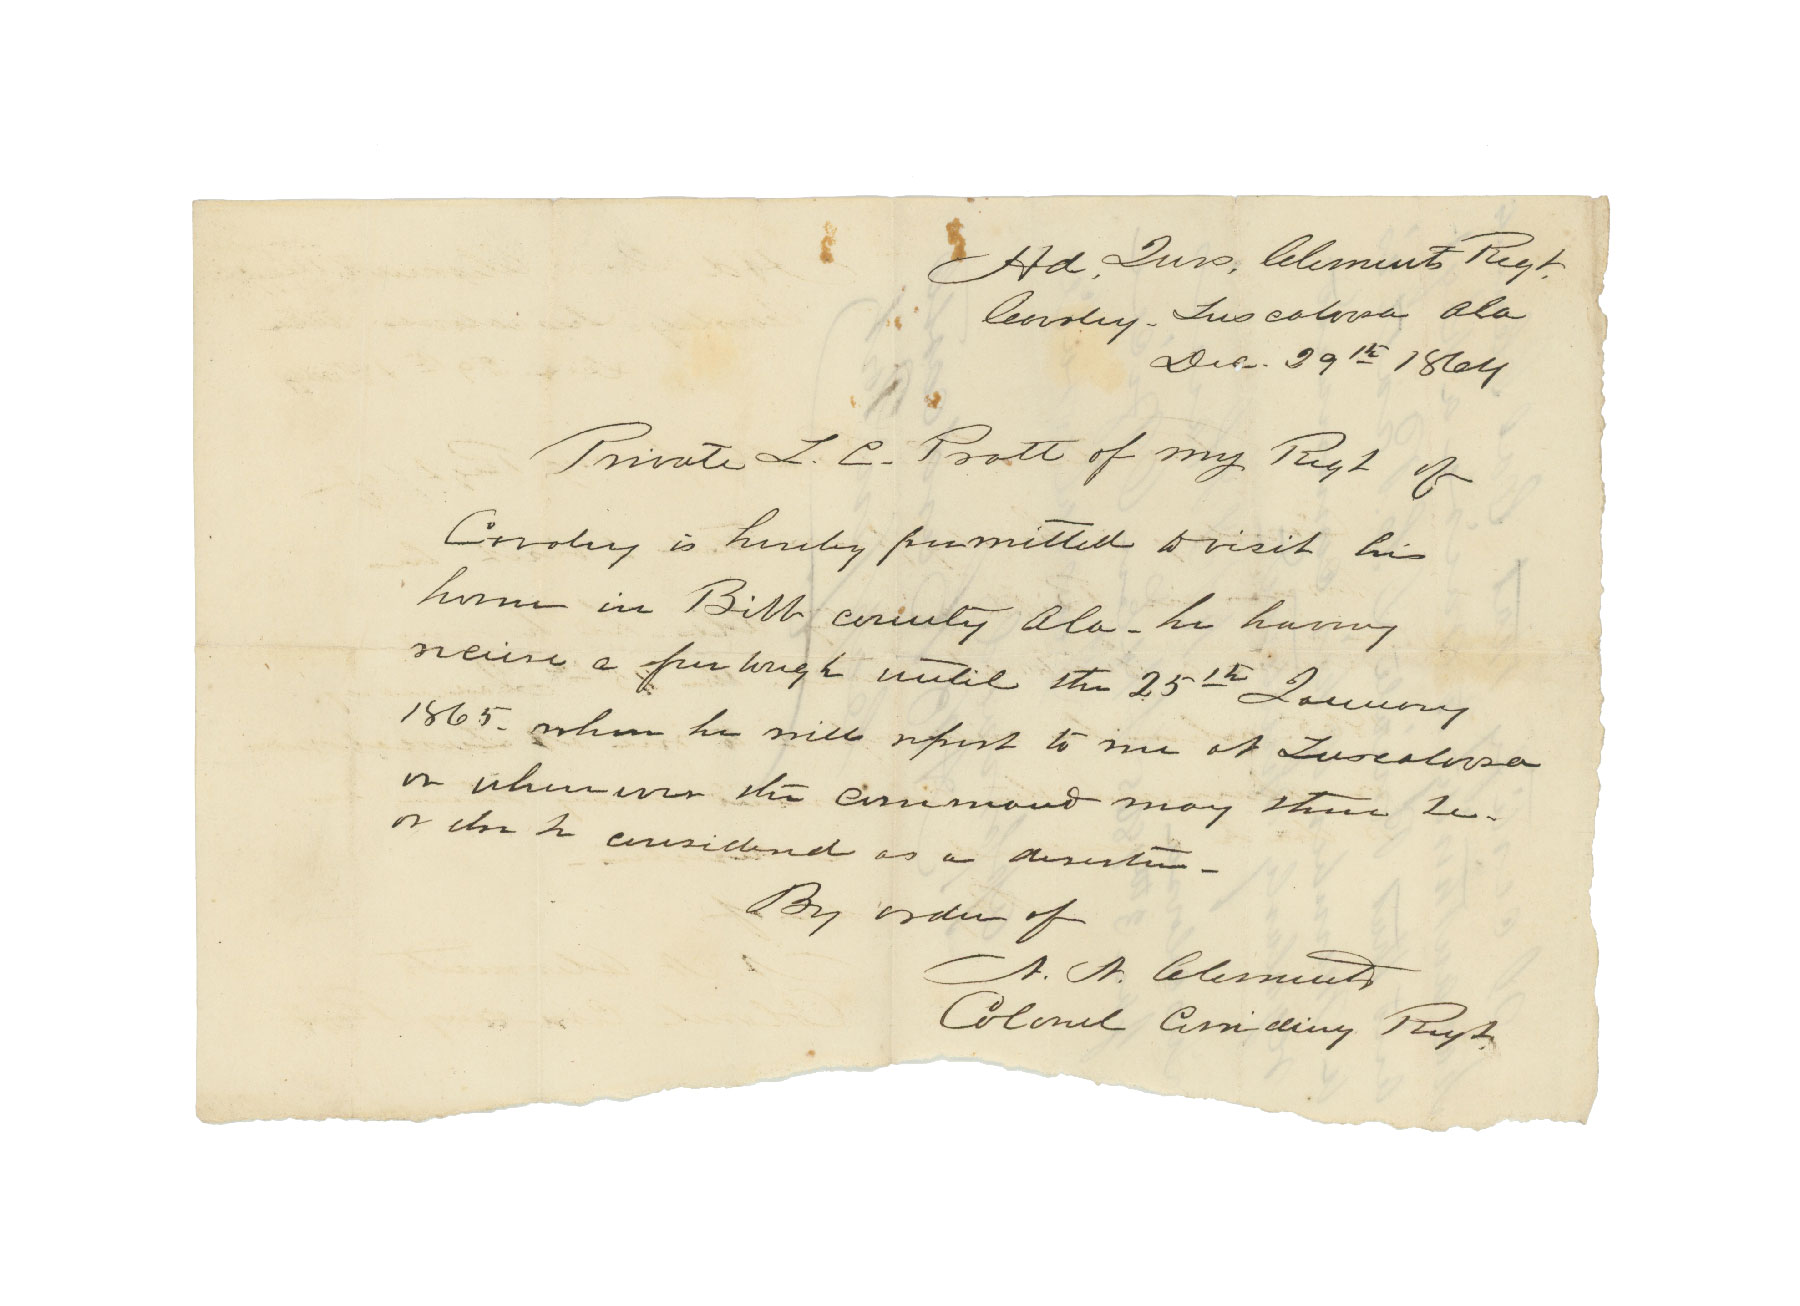 Hd. Qurs. Clements Regt.
Cavalry - Tuscaloosa Ala
Dec. 29th 1864
Private L. C. Pratt of my Regt of
Cavalry is hereby permitted to visit his
home in Bibb county Ala - he having
receive a furlough until the 25th January
1865 - when he will report to me at Tuscaloosa
or wherever the command may then be -
or else be considered as a deserter -
By order of
N. N. Clements
Colonel Comdding Regt.